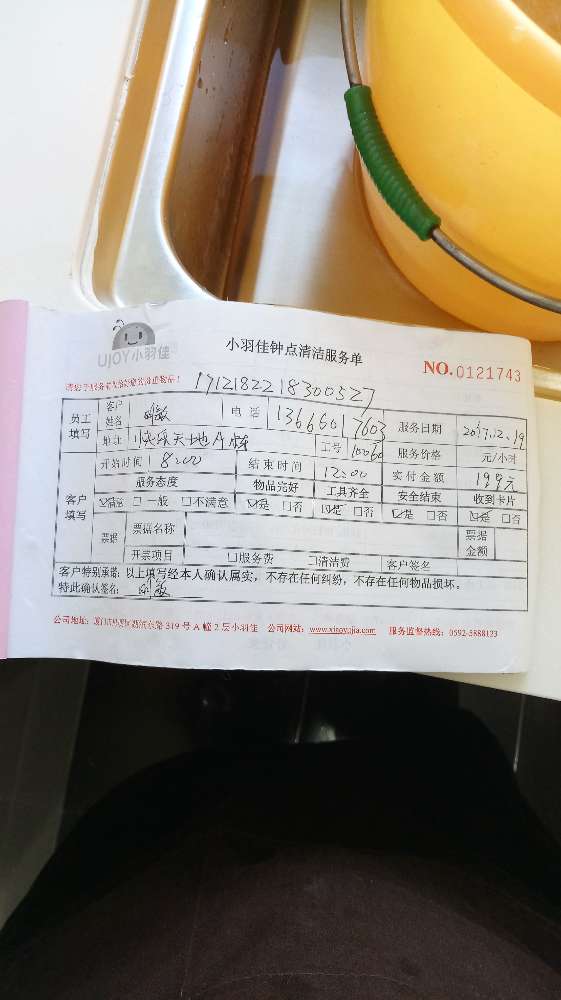 UJOY小羽佳
小羽佳钟点清洁服务单
NO.0121743
1712182218300527
员工填写 客户姓名 电话 服务日期 2017.12.19
地址 快乐天地A栋 工号 10060 服务价格 元/小时
开始时间 8:00 结束时间 12:00 实付金额 199元
客户填写 服务态度 物品完好 工具齐全 安全结束 收到卡片
☑满意 □一般 □不满意 ☑是 □否 ☑是 □否 ☑是 □否 ☑是 □否
票据 票据名称 票据金额
开票项目 □服务费 □清洁费 客户签名
客户特别承诺：以上填写经本人确认属实，不存在任何纠纷，不存在任何物品损坏。
特此确认签名：
319号A幢2层小羽佳 公司网站：www.xiaoyujia.com 服务监督热线：0592-5888123